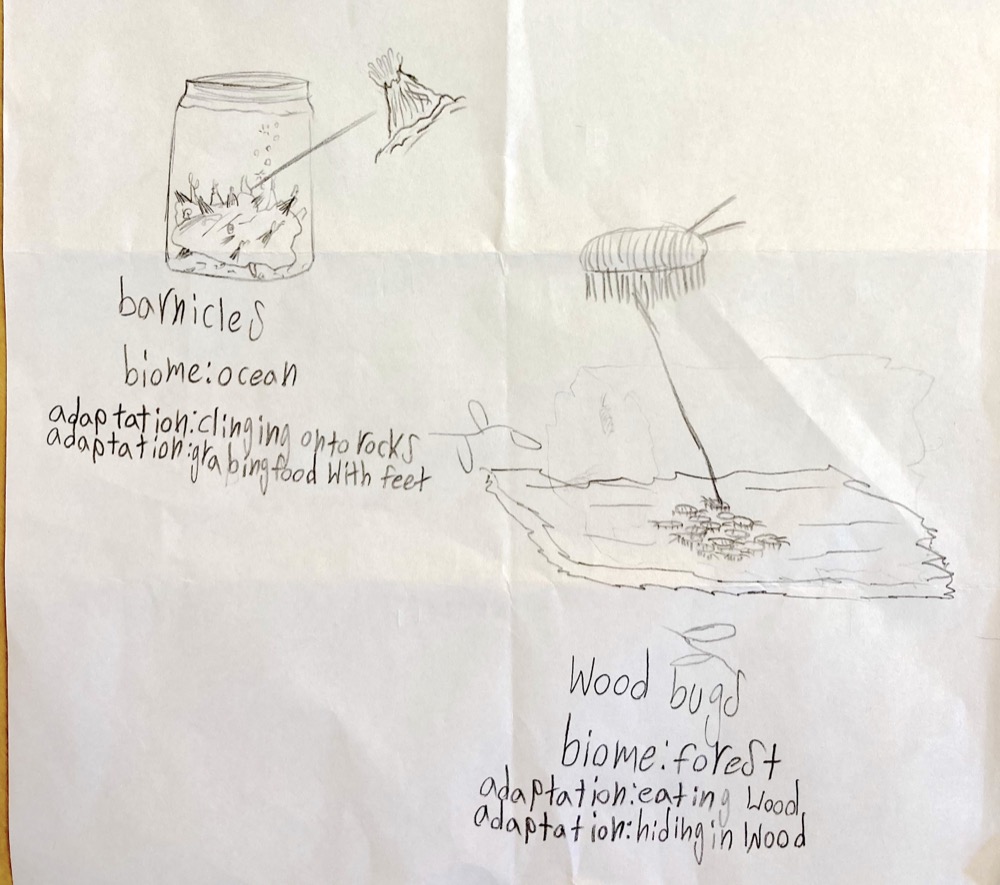 barnicles
biome:ocean
adaptation:clinging onto rocks
adaptation:grabing food with feet
Wood bugs
biome:forest
adaptation:eating Wood
adaptation:hiding in Wood